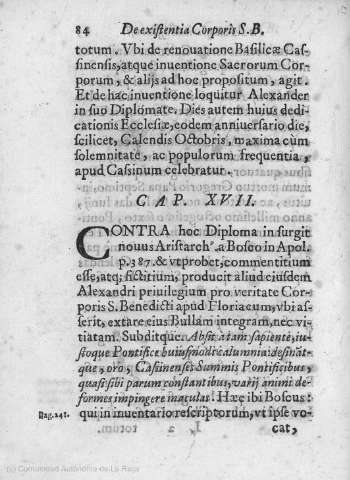 84 De existentia Corporis S.B.
totum. Vbi de renouatione Basilicæ Cas-
sinensis, atque inuentione Sacrorum Cor-
porum, & alijs ad hoc propositum, agit.
Et de hac inuentione loquitur Alexander
in suo Diplomate. Dies autem huius dedi-
cationis Ecclesiæ, eodem anniuersario die,
scilicet, Calendis Octobris, maxima cùm
solemnitate, ac populorum frequentia,
apud Cassinum celebratur.
CAP. XVII.
CONTRA hoc Diploma in surgit
nouus Aristarch⁹. a Bosco in Apol.
p.387. & vt probet, commentitium
esse, atq; fictitium, producit aliud eiusdem
Alexandri priuilegium pro veritate Cor-
poris S. Benedicti apud Floriacum, vbi as-
serit, extare eius Bullam integram, nec vi-
tiatam. Subditque. Absit à tam sapiente, iu-
stoque Pontifice huiusmodi calumnia: desinãt-
que, oro, Casinenses Summis Pontificibus,
quasi sibi parum constantibus, varij animi de-
formes impingere maculas. Hæc ibi Boscus:
Pag. 241. qui in inuentario rescriptorum, vt ipse vo-
cat,
(c) Comunidad Autónoma de La Rioja